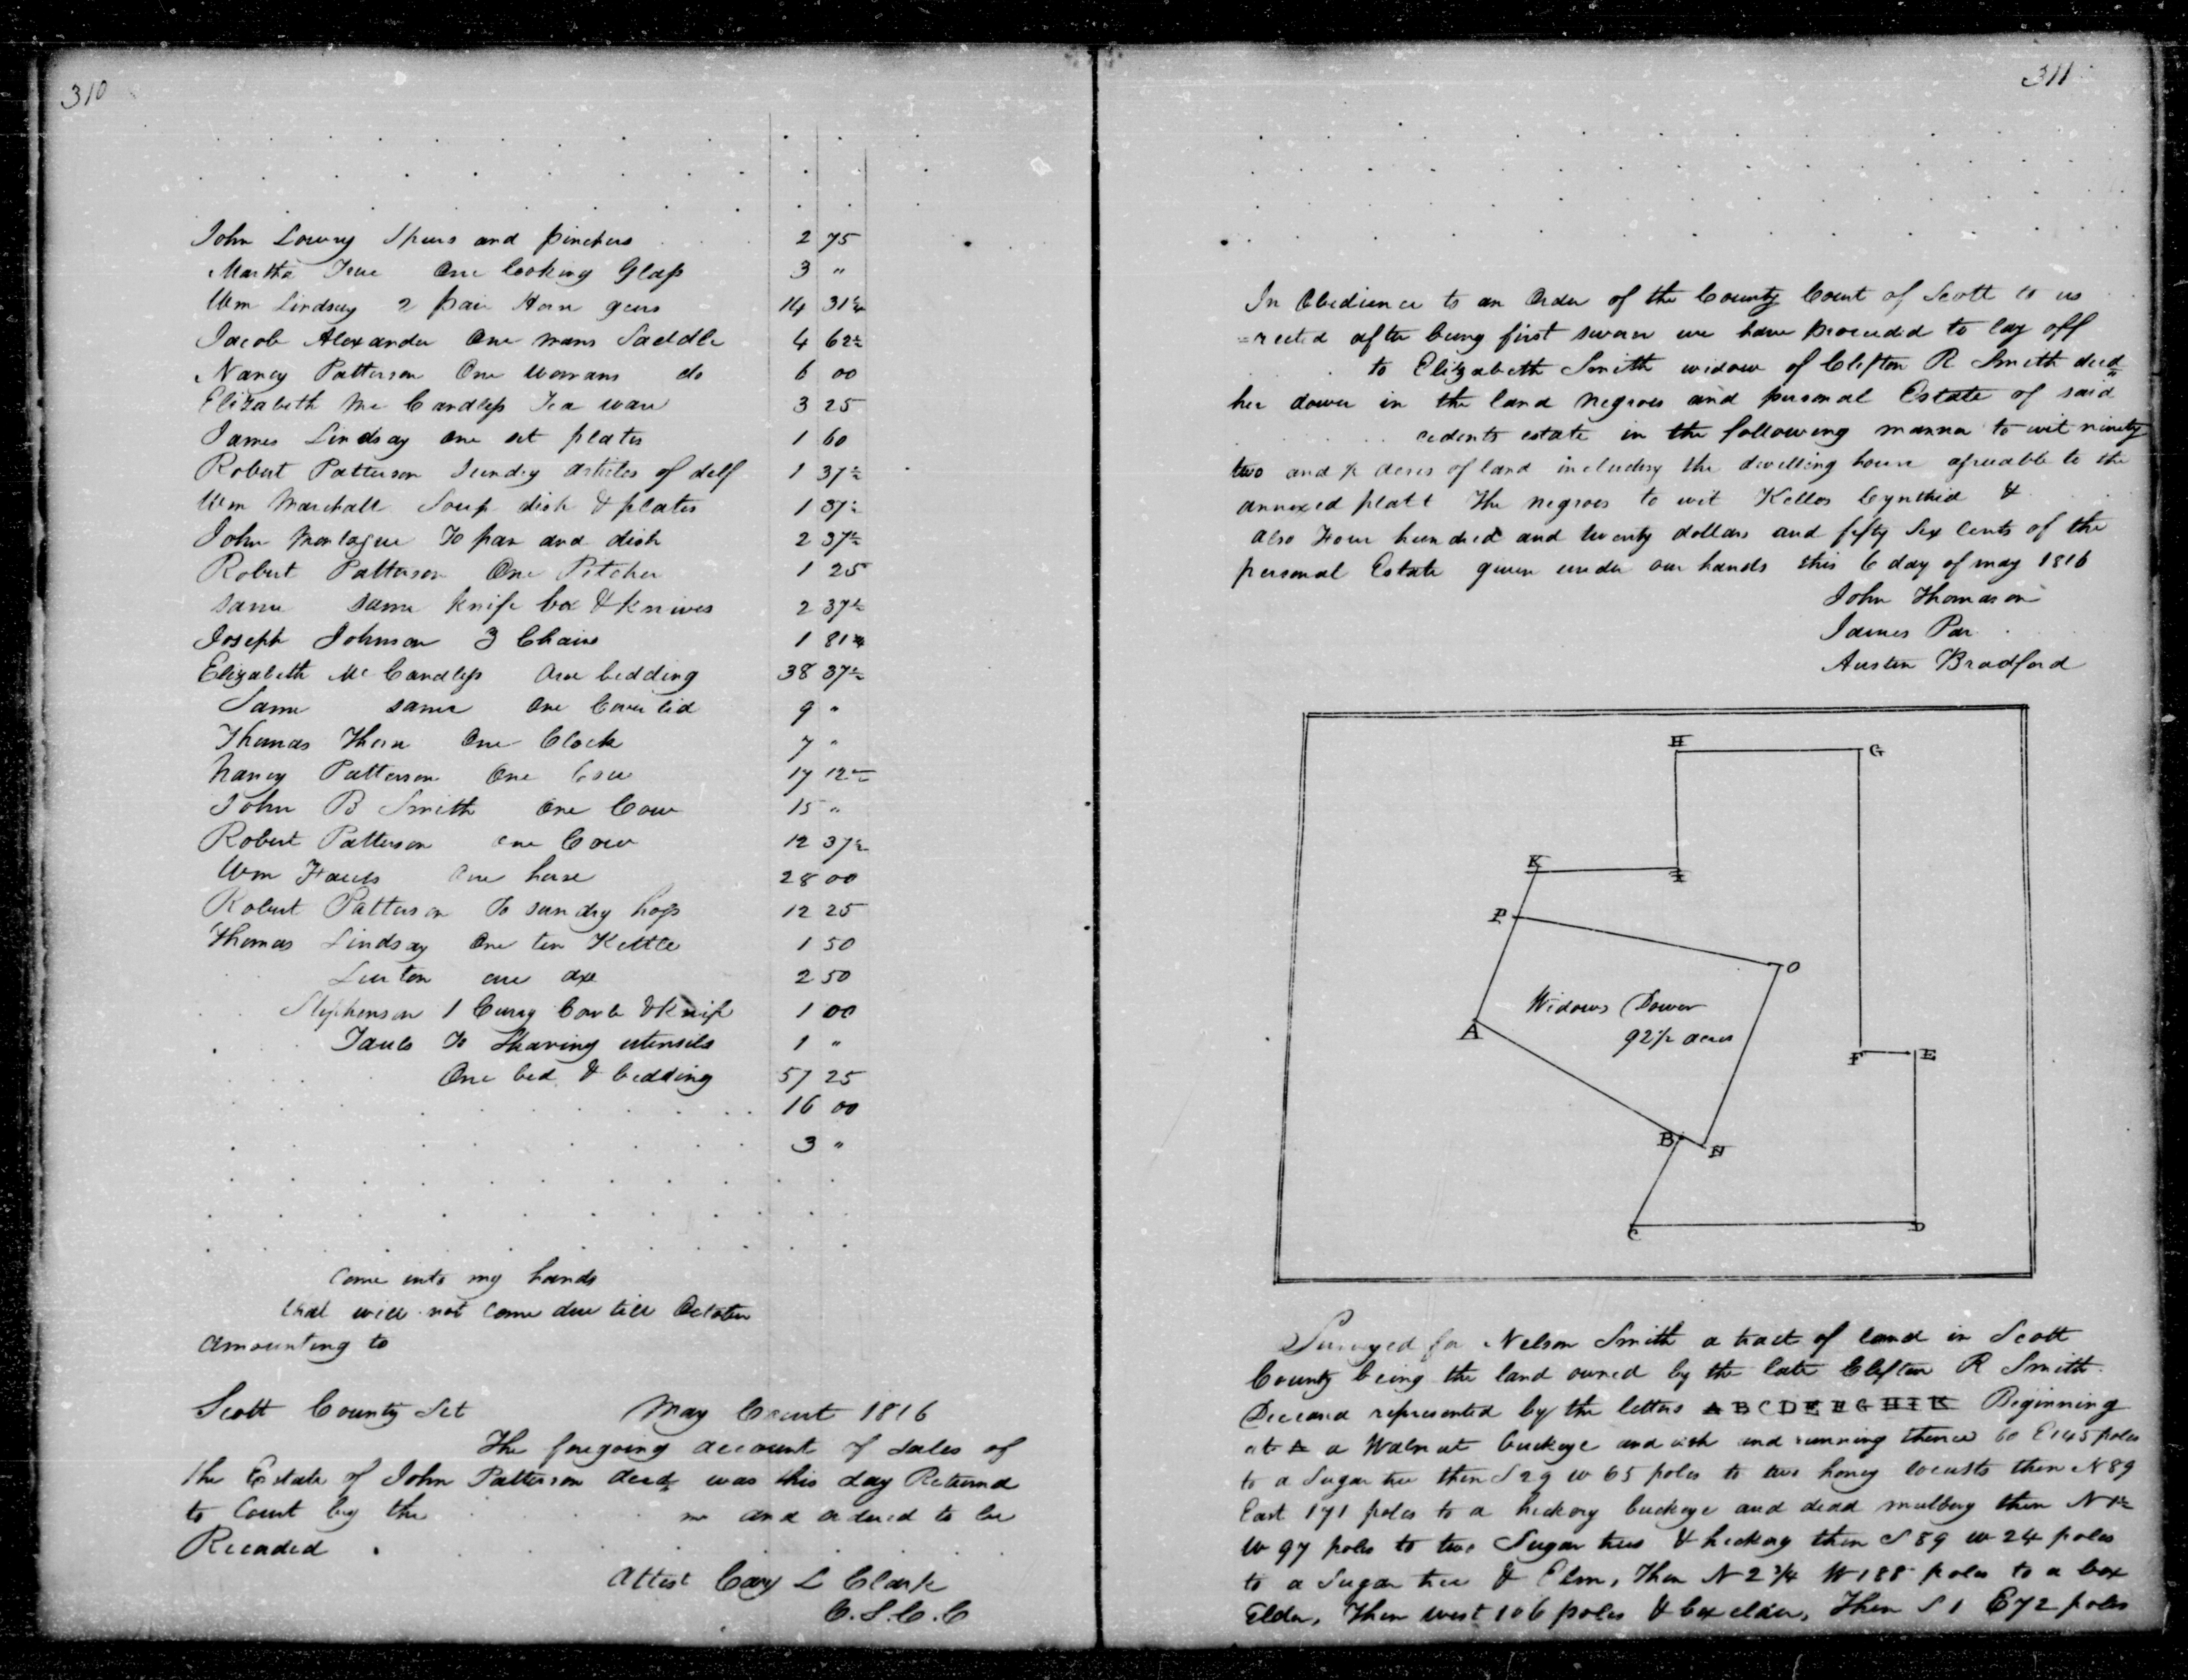 310
John Lowry Spurs and pinchers 2 75
Martha True One looking Glass 3 "
Wm Lindsay 2 pair Horn gears 14 31¼
Jacob Alexander One mans Saddle 4 62½
Nancy Patterson One womans do 6 00
Elizabeth Mc Candless Tea ware 3 25
James Lindsay one set plates 1 60
Robert Patterson Sundry articles of delf 1 37½
Wm Marshall Soup dish & plates 1 37½
John Montague To pan and dish 2 37½
Robert Patterson One Pitcher 1 25
same same knife box & knives 2 37½
Joseph Johnson 3 Chairs 1 81¼
Elizabeth Mc Candless One bedding 38 37½
Same same One Cover lid 9 "
Thomas Thorn One Clock 7 "
Nancy Patterson One Cow 17 12½
John B Smith One Cow 15 "
Robert Patterson one Cow 12 37½
Wm one horse 28 00
Robert Patterson To sundry hogs 12 25
Thomas Lindsay One tea Kettle 1 50
Linton one axe 2 50
Stephenson 1 Curry Comb & Knife 1 00
To Shaving utensils 1 "
One bed & bedding 57 25
16 00
3 "
Come into my hands
that will not come due till October
amounting to
Scott County Sct May Court 1816
The foregoing account of sales of
the Estate of John Patterson decd was this day Returnd
to Court by the and ordered to be
Recorded
Attest Cary L Clark
C.S.C.C
311
In Obedience to an Order of the County Court of Scott to us
=rected after being first sworn we have proceeded to lay off
to Elizabeth Smith widow of Clifton R Smith decd
her dower in the land negroes and personal Estate of said
cedents estate in the following manner to wit ninety
two and ½ acres of land including the dwelling house agreeable to the
annexed platt The negroes to wit Kellos Cynthia &
also Four hundred and twenty dollars and fifty Six Cents of the
personal Estate given under our hands this 6 day of may 1816
John Thomason
James Par
Austin Bradford
H G
K I
P O
Widows Dower
92½ acres
A
F E
B N
C D
Surveyed for Nelson Smith a tract of land in Scott
County being the land owned by the late Clifton R Smith
Deceasd represented by the letters A B C D E F G H I K Beginning
at A a Walnut buckeye and ash and running thence 60 E 145 poles
to a Sugar tree then S 29 W 65 poles to two honey locusts then N 89
East 171 poles to a hickory buckeye and dead mulbery then N 1½
W 97 poles to two Sugar trees & hickory then S 89 W 24 poles
to a Sugar tree & Elm, Then N 2 3/4 W 188 poles to a box
Elder, Then west 106 poles & box elder, Then S 1 E 72 poles